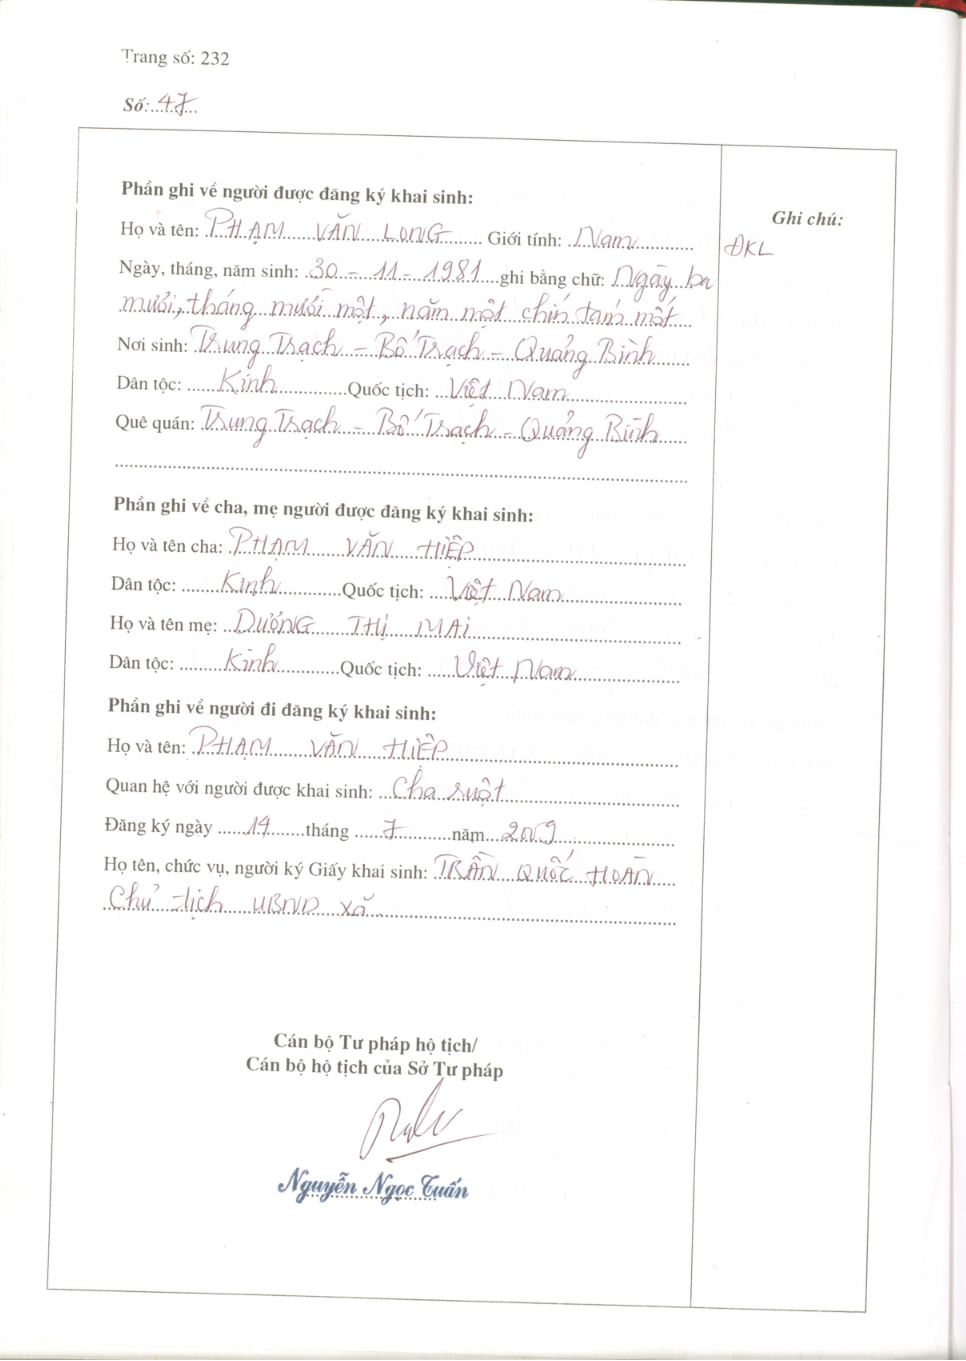 Trang số: 232
Số: 47
Phần ghi về người được đăng ký khai sinh:
Ghi chú:
Họ và tên: PHẠM VĂN LONG Giới tính: Nam
ĐKL
Ngày, tháng, năm sinh: 30 - 11 - 1981 ghi bằng chữ: Ngày ba
mươi, tháng mười một, năm một chín tám mốt
Nơi sinh: Trung Trạch - Bố Trạch - Quảng Bình
Dân tộc: Kinh Quốc tịch: Việt Nam
Quê quán: Trung Trạch - Bố Trạch - Quảng Bình
Phần ghi về cha, mẹ người được đăng ký khai sinh:
Họ và tên cha: PHẠM VĂN HIỆP
Dân tộc: Kinh Quốc tịch: Việt Nam
Họ và tên mẹ: DƯƠNG THỊ MAI
Dân tộc: Kinh Quốc tịch: Việt Nam
Phần ghi về người đi đăng ký khai sinh:
Họ và tên: PHẠM VĂN HIỆP
Quan hệ với người được khai sinh: Cha ruột
Đăng ký ngày 14 tháng 7 năm 2009
Họ tên, chức vụ, người ký Giấy khai sinh: TRẦN QUỐC HOÀN
Chủ tịch UBND xã
Cán bộ Tư pháp hộ tịch/
Cán bộ hộ tịch của Sở Tư pháp
Nguyễn Ngọc Tuấn